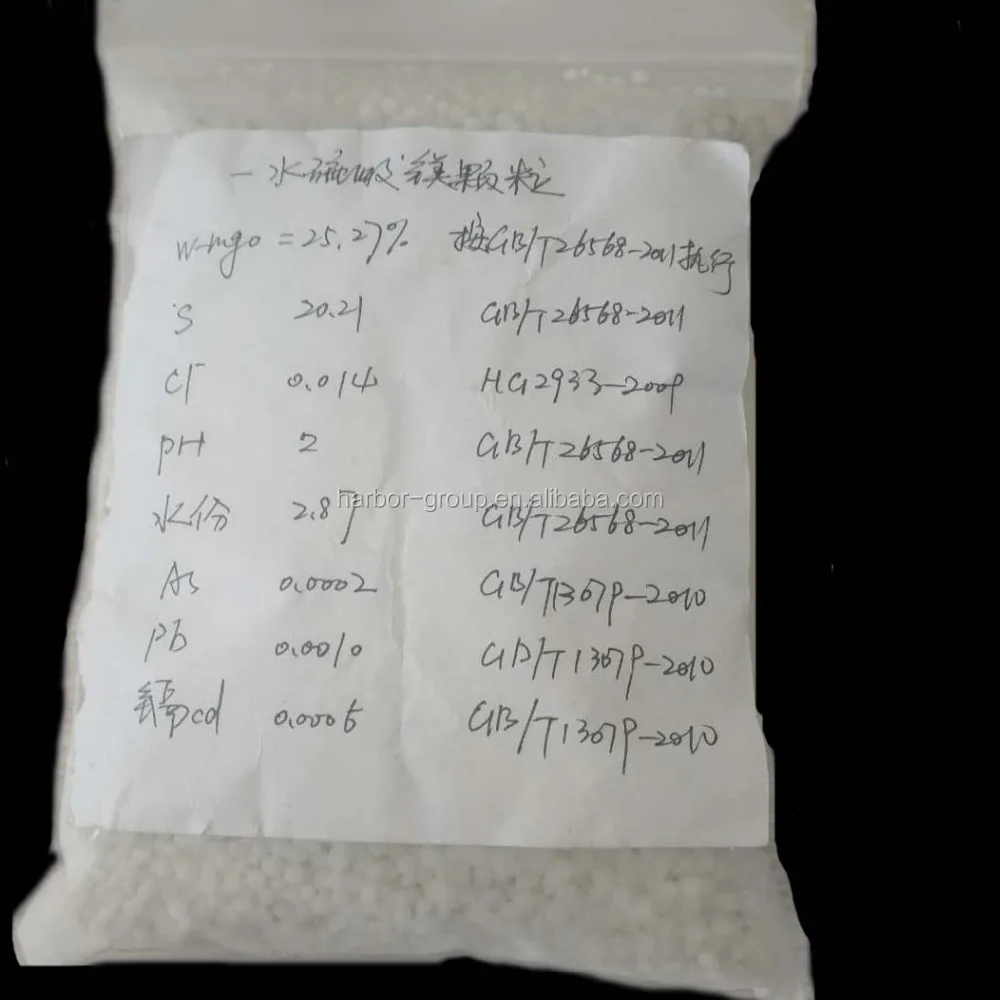 一水硫酸镁颗粒
w-mgo = 25.27% 按GB/T26568-2011执行
S 20.21 GB/T26568-2011
Cl⁻ 0.014 HG2933-2009
pH 2 GB/T26568-2011
harbor-group.en.alibaba.com
水份 2.87 GB/T26568-2011
As 0.0002 GB/T13079-2010
Pb 0.0010 GB/T13079-2010
镉cd 0.0005 GB/T13079-2010